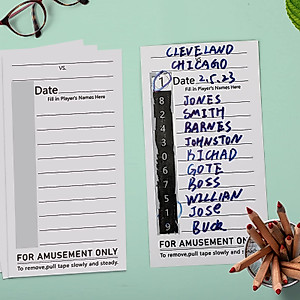 VS.
Date
Fill in Player's Names Here
FOR AMUSEMENT ONLY
To remove,pull tape slowly and steady.
CLEVELAND
CHICAGO
1 Date 2.5.23
Fill in Player's Names Here
8 JONES
2 SMITH
4 BARNES
3 JOHNSTON
0 RICHAD
6 GOTE
7 BOSS
5 WILLIAN
1 JOSE
9 BUCK
FOR AMUSEMENT ONLY
To remove,pull tape slowly and steady.